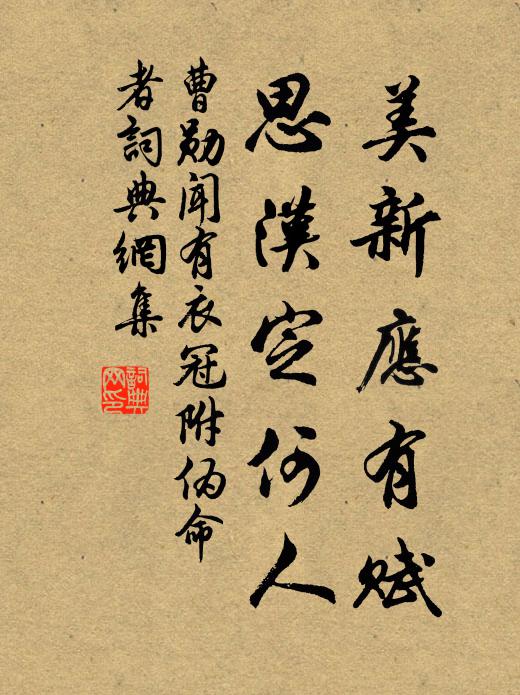 美新應有賦
思漢定何人
曹勛聞有衣冠附偽命
者詞典網集
詞典
網印